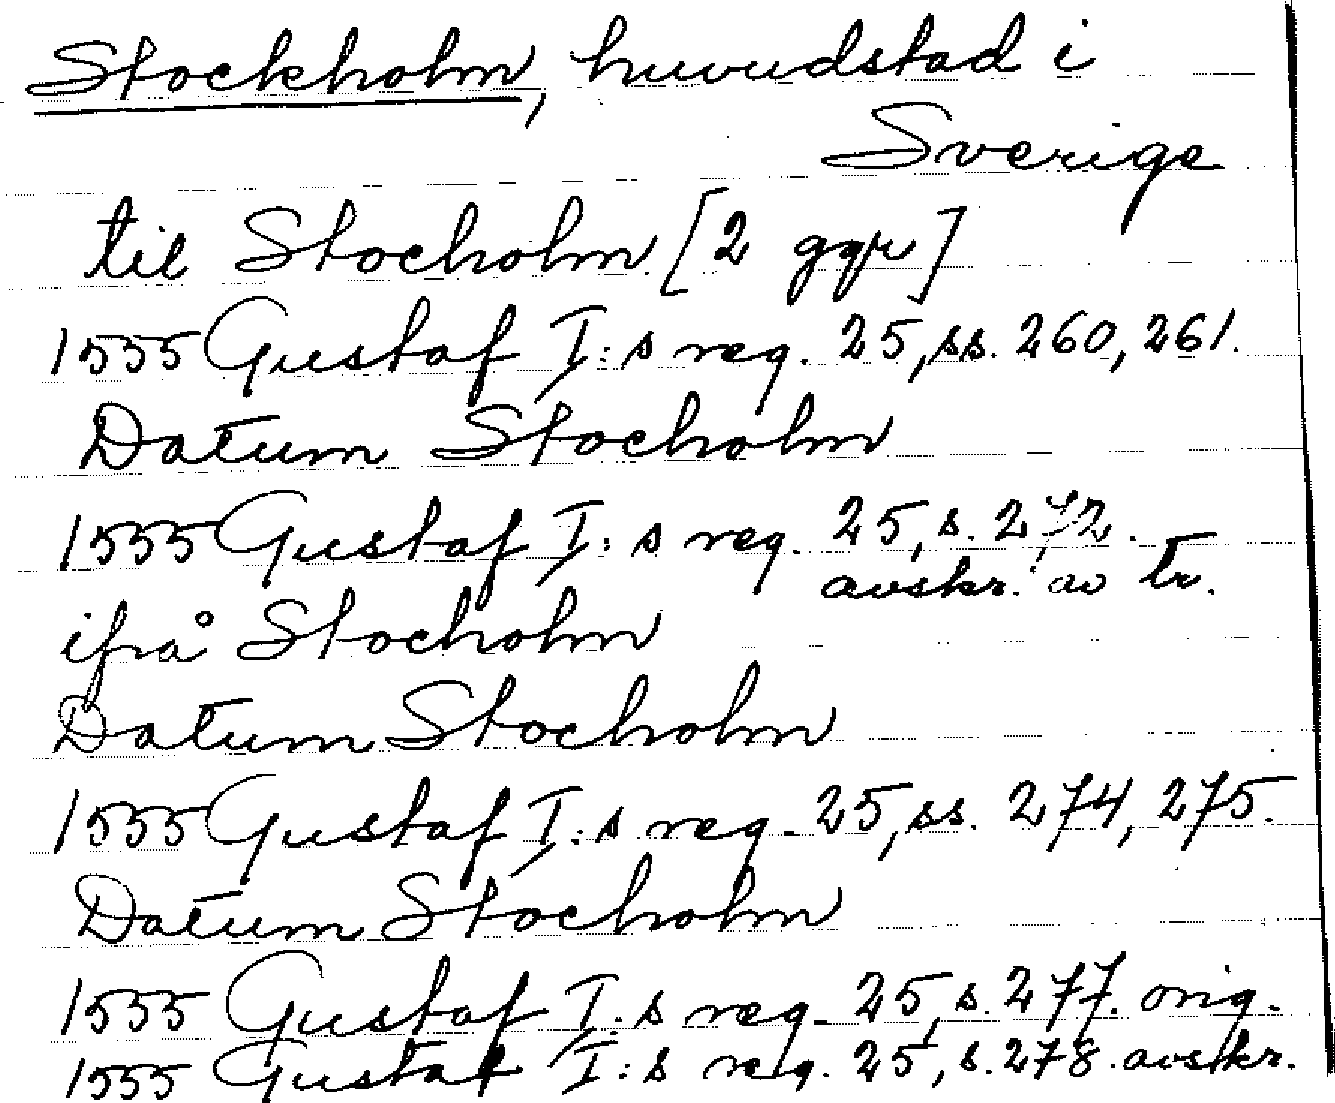 Stockholm, huvudstad i
Sverige
til Stocholm [2 ggr]
1555 Gustaf I:s reg. 25, ss. 260, 261.
Datum Stocholm
1555 Gustaf I:s reg. 25, s. 272.
avskr. av tr.
ifrå Stocholm
Datum Stocholm
1555 Gustaf I:s reg. 25, ss. 274, 275.
Datum Stocholm
1555 Gustaf I:s reg. 25, s. 277. orig.
1555 Gustaf I:s reg. 25, s. 278. avskr.